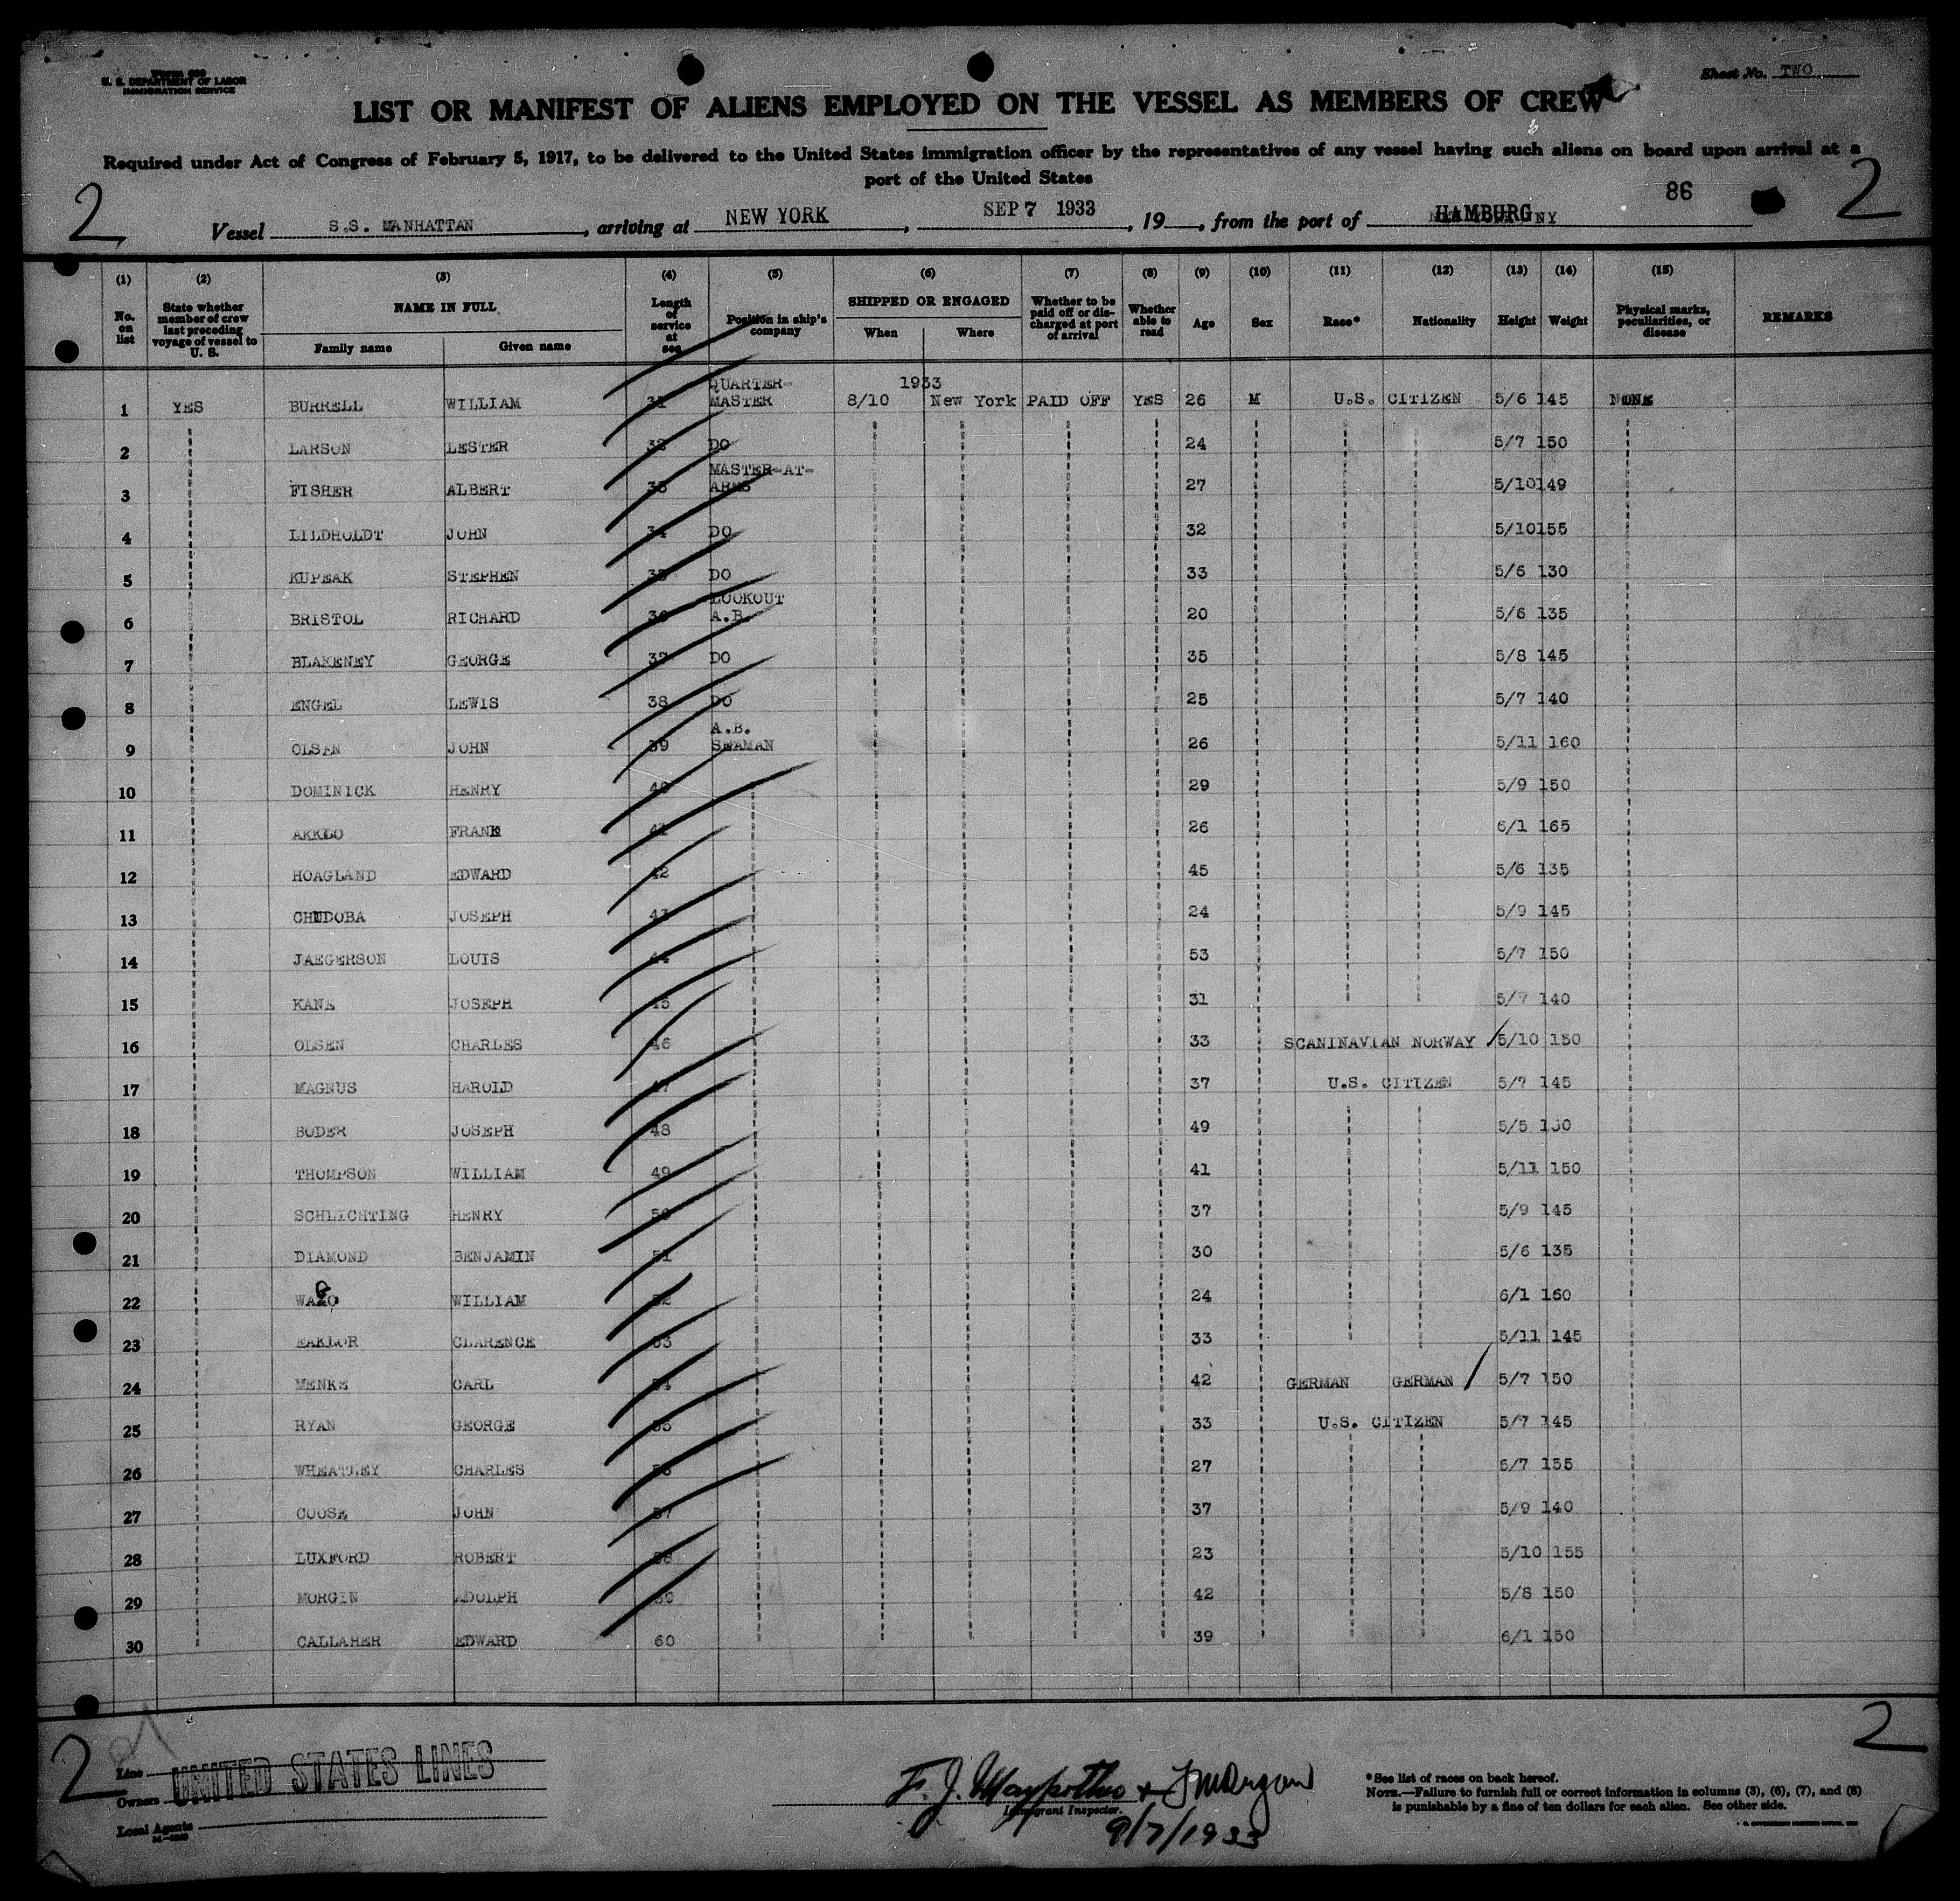 U. S. DEPARTMENT OF LABOR
IMMIGRATION SERVICE
Sheet No. TWO
LIST OR MANIFEST OF ALIENS EMPLOYED ON THE VESSEL AS MEMBERS OF CREW
Required under Act of Congress of February 5, 1917, to be delivered to the United States immigration officer by the representatives of any vessel having such aliens on board upon arrival at a
port of the United States
86
2 2
Vessel S.S. MANHATTAN, arriving at NEW YORK, SEP 7 1933, 19__, from the port of HAMBURG
(1) (2) (3) (4) (5) (6) (7) (8) (9) (10) (11) (12) (13) (14) (15)
No. on list
State whether member of crew last preceding voyage of vessel to U. S.
NAME IN FULL
Family name Given name
Length of service at sea
Position in ship's company
SHIPPED OR ENGAGED
When Where
Whether to be paid off or discharged at port of arrival
Whether able to read
Age Sex Race* Nationality Height Weight
Physical marks, peculiarities, or disease
REMARKS
1 YES BURRELL WILLIAM 31 QUARTER-MASTER 1933 8/10 New York PAID OFF YES 26 M U.S. CITIZEN 5/6 145 NONE
2 LARSON LESTER 32 DO 24 5/7 150
3 FISHER ALBERT 33 MASTER-AT-ARMS 27 5/10 149
4 LILDHOLDT JOHN 34 DO 32 5/10 155
5 KUPEAK STEPHEN 35 DO 33 5/6 130
6 BRISTOL RICHARD 36 LOOKOUT A.B. 20 5/6 135
7 BLAKENEY GEORGE 37 DO 35 5/8 145
8 ENGEL LEWIS 38 DO 25 5/7 140
9 OLSEN JOHN 39 A.B. SEAMAN 26 5/11 160
10 DOMINICK HENRY 40 29 5/9 150
11 AKKLO FRANK 41 26 6/1 165
12 HOAGLAND EDWARD 42 45 5/6 135
13 CHUDOBA JOSEPH 43 24 5/9 145
14 JAEGERSON LOUIS 44 53 5/7 150
15 KANE JOSEPH 45 31 5/7 140
16 OLSEN CHARLES 46 33 SCANINAVIAN NORWAY 5/10 150
17 MAGNUS HAROLD 47 37 U.S. CITIZEN 5/7 145
18 BODER JOSEPH 48 49 5/5
19 THOMPSON WILLIAM 49 41 5/11 150
20 SCHLICHTING HENRY 50 37 5/9 145
21 DIAMOND BENJAMIN 51 30 5/6 135
22 WILLIAM 52 24 6/1 160
23 EAKLOR CLARENCE 53 33 5/11 145
24 MENKE CARL 54 42 GERMAN GERMAN 5/7 150
25 RYAN GEORGE 55 33 U.S. CITIZEN 5/7 145
26 WHEATLEY CHARLES 56 27 5/7 155
27 COOSE JOHN 57 37 5/9 140
28 LUXFORD ROBERT 58 23 5/10 155
29 MORGIN ADOLPH 59 42 5/8 150
30 CALLAHER EDWARD 60 39 6/1 150
2 2
Line UNITED STATES LINES
Owners
Local Agents
Immigrant Inspector.
9/7/1933
*See list of races on back hereof.
NOTE.—Failure to furnish full or correct information in columns (3), (6), (7), and (8)
is punishable by a fine of ten dollars for each alien. See other side.